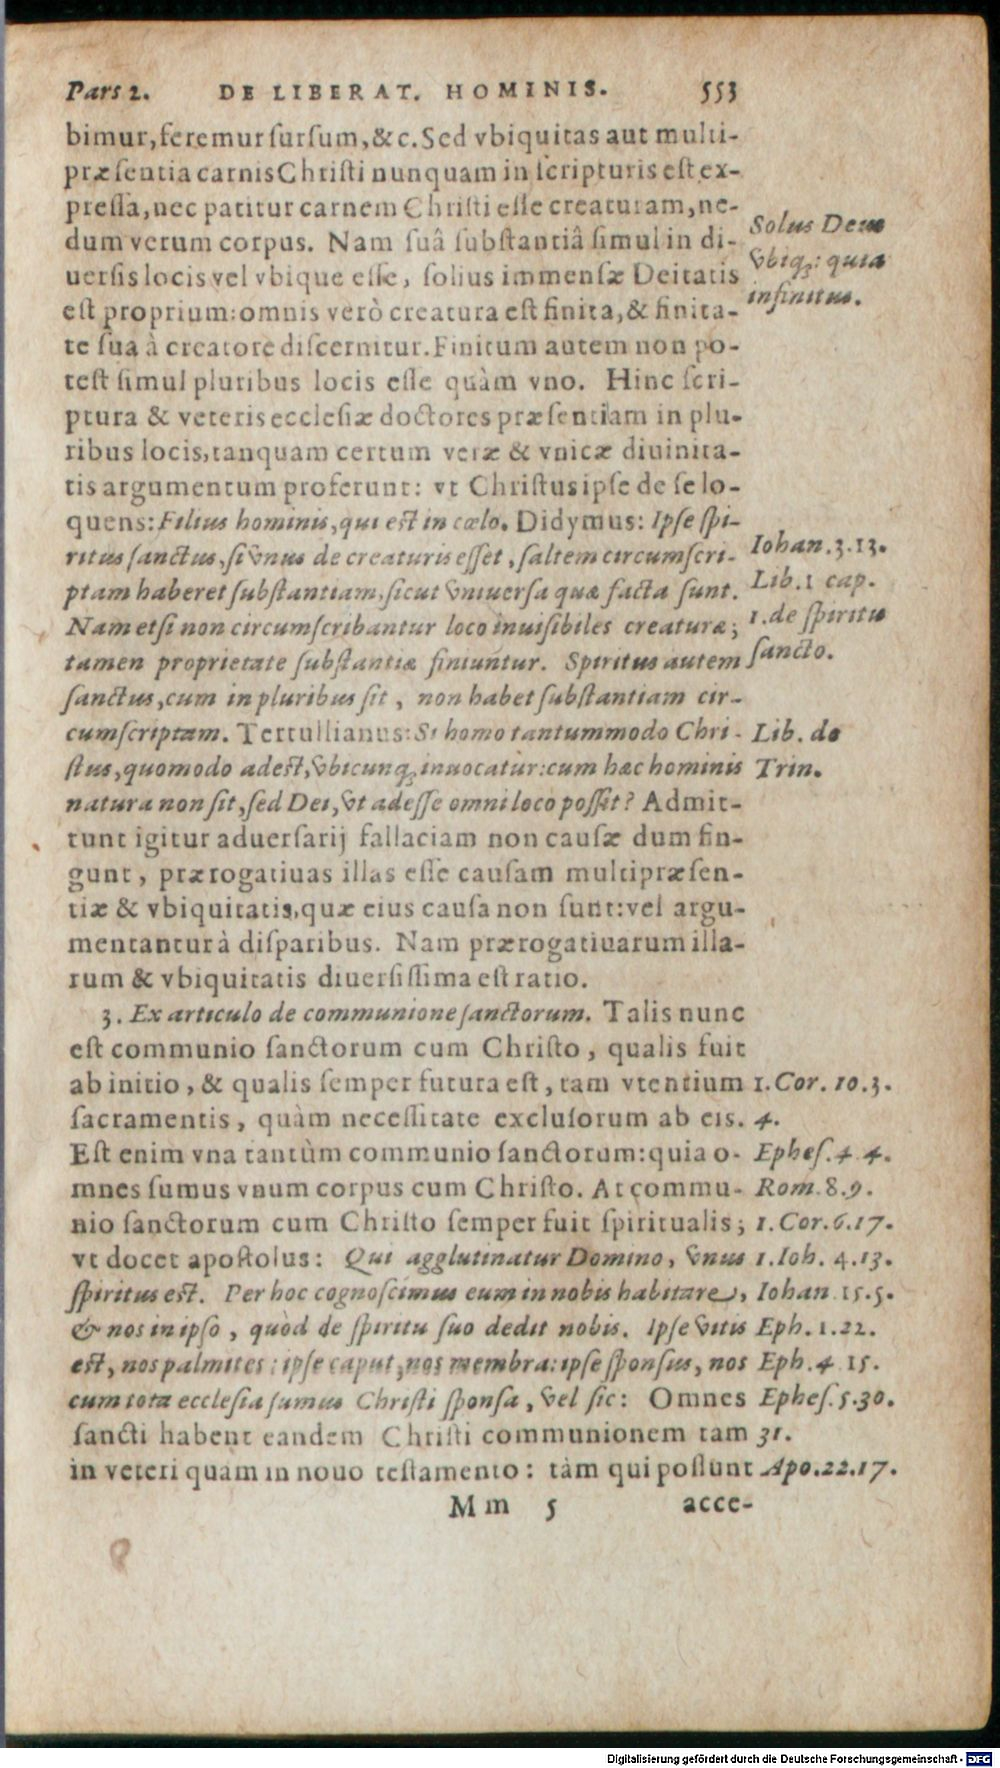 Pars 2. DE LIBERAT. HOMINIS. 553
bimur, feremur ſurſum, &c. Sed vbiquitas aut multi-
præſentia carnis Chriſti nunquam in ſcripturis eſt ex-
preſſa, nec patitur carnem Chriſti eſſe creaturam, ne-
dum verum corpus. Nam ſuâ ſubſtantiâ ſimul in di-
uerſis locis vel vbique eſſe, ſolius immenſæ Deitatis
eſt proprium: omnis verò creatura eſt finita, & finita-
te ſua à creatore diſcernitur. Finitum autem non po-
teſt ſimul pluribus locis eſſe quàm vno. Hinc ſcri-
ptura & veteris eccleſiæ doctores præſentiam in plu-
ribus locis, tanquam certum veræ & vnicæ diuinita-
tis argumentum proferunt: vt Chriſtus ipſe de ſe lo-
quens: Filius hominis, qui eſt in cœlo. Didymus: Ipſe ſpi-
ritus ſanctus, ſi vnus de creaturis eſſet, ſaltem circumſcri-
ptam haberet ſubſtantiam, ſicut vniuerſa quæ facta ſunt.
Nam etſi non circumſcribantur loco inuiſibiles creaturæ;
tamen proprietate ſubſtantiæ finiuntur. Spiritus autem
ſanctus, cum in pluribus ſit, non habet ſubſtantiam cir-
cumſcriptam. Tertullianus: Si homo tantummodo Chri-
ſtus, quomodo adeſt, vbicunq; inuocatur: cum hæc hominis
natura non ſit, ſed Dei, vt adeſſe omni loco poſſit? Admit-
tunt igitur aduerſarij fallaciam non cauſæ dum fin-
gunt, prærogatiuas illas eſſe cauſam multipræſen-
tiæ & vbiquitatis, quæ eius cauſa non ſunt: vel argu-
mentantur à diſparibus. Nam prærogatiuarum illa-
rum & vbiquitatis diuerſiſſima eſt ratio.
3. Ex articulo de communione ſanctorum. Talis nunc
eſt communio ſanctorum cum Chriſto, qualis fuit
ab initio, & qualis ſemper futura eſt, tam vtentium
ſacramentis, quàm neceſſitate excluſorum ab eis.
Eſt enim vna tantùm communio ſanctorum: quia o-
mnes ſumus vnum corpus cum Chriſto. At commu-
nio ſanctorum cum Chriſto ſemper fuit ſpiritualis;
vt docet apoſtolus: Qui agglutinatur Domino, vnus
ſpiritus eſt. Per hoc cognoſcimus eum in nobis habitare,
& nos in ipſo, quòd de ſpiritu ſuo dedit nobis. Ipſe vitis
eſt, nos palmites: ipſe caput, nos membra: ipſe ſponſus, nos
cum tota eccleſia ſumus Chriſti ſponſa, vel ſic: Omnes
ſancti habent eandem Chriſti communionem tam
in veteri quàm in nouo teſtamento: tàm qui poſſunt
Mm 5 acce-
Solus Deus
vbiq;: quia
infinitus.
Iohan. 3. 13.
Lib. 1 cap.
1. de ſpiritu
ſancto.
Lib. de
Trin.
1. Cor. 10. 3.
4.
Epheſ. 4. 4.
Rom. 8. 9.
1. Cor. 6. 17.
1. Ioh. 4. 13.
Iohan. 15. 5.
Eph. 1. 22.
Eph. 4. 15.
Epheſ. 5. 30.
31.
Apo. 22. 17.
Digitalisierung gefördert durch die Deutsche Forschungsgemeinschaft - DFG